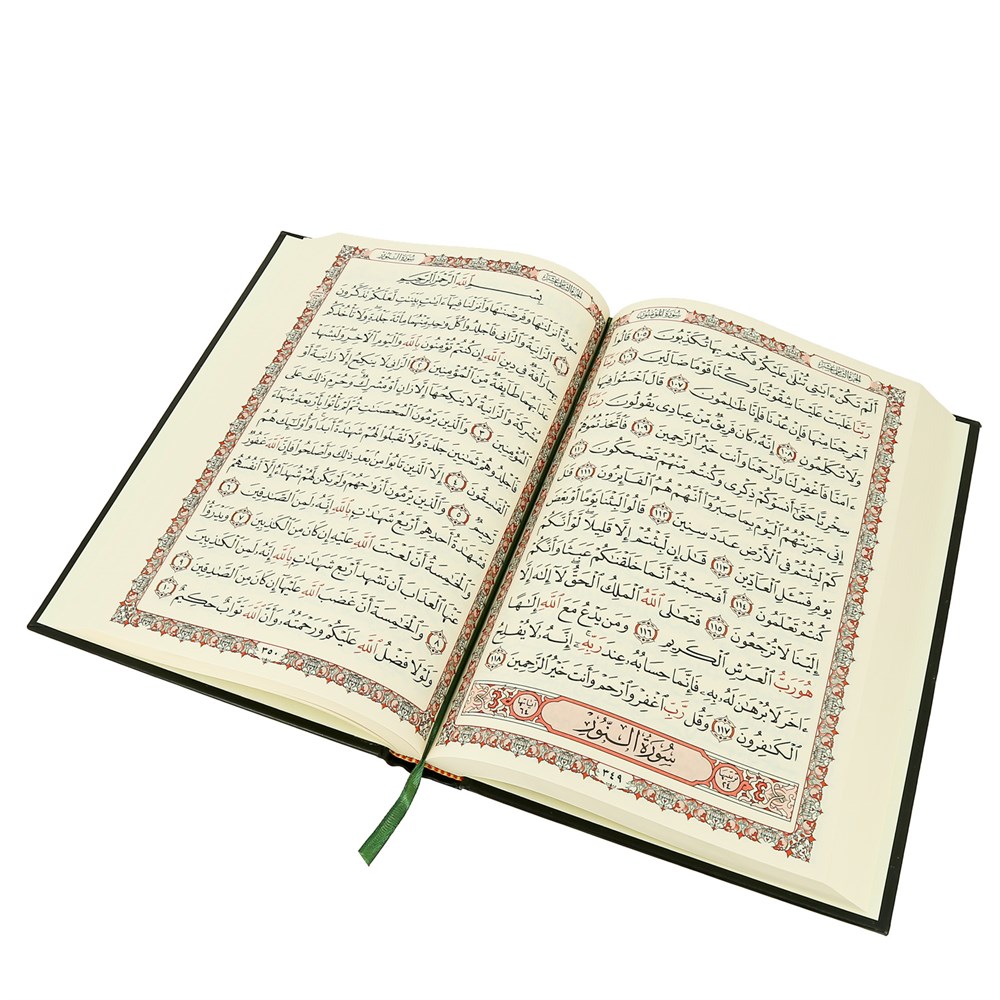 سُورَةُ المُؤْمِنُونَ الجُزْءُ الثَّامِنَ عَشَرَ
أَلَمْ تَكُنْ ءَايَٰتِى تُتْلَىٰ عَلَيْكُمْ فَكُنتُم بِهَا تُكَذِّبُونَ ١٠٥ قَالُوا۟
رَبَّنَا غَلَبَتْ عَلَيْنَا شِقْوَتُنَا وَكُنَّا قَوْمًا ضَآلِّينَ ١٠٦ رَبَّنَآ
أَخْرِجْنَا مِنْهَا فَإِنْ عُدْنَا فَإِنَّا ظَٰلِمُونَ ١٠٧ قَالَ ٱخْسَـُٔوا۟ فِيهَا
وَلَا تُكَلِّمُونِ ١٠٨ إِنَّهُۥ كَانَ فَرِيقٌ مِّنْ عِبَادِى يَقُولُونَ رَبَّنَآ
ءَامَنَّا فَٱغْفِرْ لَنَا وَٱرْحَمْنَا وَأَنتَ خَيْرُ ٱلرَّٰحِمِينَ ١٠٩ فَٱتَّخَذْتُمُوهُمْ
سِخْرِيًّا حَتَّىٰٓ أَنسَوْكُمْ ذِكْرِى وَكُنتُم مِّنْهُمْ تَضْحَكُونَ ١١٠
إِنِّى جَزَيْتُهُمُ ٱلْيَوْمَ بِمَا صَبَرُوٓا۟ أَنَّهُمْ هُمُ ٱلْفَآئِزُونَ ١١١ قَٰلَ
كَمْ لَبِثْتُمْ فِى ٱلْأَرْضِ عَدَدَ سِنِينَ ١١٢ قَالُوا۟ لَبِثْنَا يَوْمًا أَوْ بَعْضَ
يَوْمٍ فَسْـَٔلِ ٱلْعَآدِّينَ ١١٣ قَٰلَ إِن لَّبِثْتُمْ إِلَّا قَلِيلًا لَّوْ أَنَّكُمْ
كُنتُمْ تَعْلَمُونَ ١١٤ أَفَحَسِبْتُمْ أَنَّمَا خَلَقْنَٰكُمْ عَبَثًا وَأَنَّكُمْ
إِلَيْنَا لَا تُرْجَعُونَ ١١٥ فَتَعَٰلَى ٱللَّهُ ٱلْمَلِكُ ٱلْحَقُّ لَآ إِلَٰهَ إِلَّا
هُوَ رَبُّ ٱلْعَرْشِ ٱلْكَرِيمِ ١١٦ وَمَن يَدْعُ مَعَ ٱللَّهِ إِلَٰهًا
ءَاخَرَ لَا بُرْهَٰنَ لَهُۥ بِهِۦ فَإِنَّمَا حِسَابُهُۥ عِندَ رَبِّهِۦٓ إِنَّهُۥ لَا يُفْلِحُ
ٱلْكَٰفِرُونَ ١١٧ وَقُل رَّبِّ ٱغْفِرْ وَٱرْحَمْ وَأَنتَ خَيْرُ ٱلرَّٰحِمِينَ ١١٨
ترتيبها ٢٤ سُورَةُ النُّورِ آياتها ٦٤
٣٤٩
الجُزْءُ الثَّامِنَ عَشَرَ سُورَةُ النُّورِ
بِسْمِ ٱللَّهِ ٱلرَّحْمَٰنِ ٱلرَّحِيمِ
سُورَةٌ أَنزَلْنَٰهَا وَفَرَضْنَٰهَا وَأَنزَلْنَا فِيهَآ ءَايَٰتٍۭ بَيِّنَٰتٍ لَّعَلَّكُمْ تَذَكَّرُونَ
١ ٱلزَّانِيَةُ وَٱلزَّانِى فَٱجْلِدُوا۟ كُلَّ وَٰحِدٍ مِّنْهُمَا مِا۟ئَةَ جَلْدَةٍ وَلَا تَأْخُذْكُم
بِهِمَا رَأْفَةٌ فِى دِينِ ٱللَّهِ إِن كُنتُمْ تُؤْمِنُونَ بِٱللَّهِ وَٱلْيَوْمِ ٱلْءَاخِرِ وَلْيَشْهَدْ
عَذَابَهُمَا طَآئِفَةٌ مِّنَ ٱلْمُؤْمِنِينَ ٢ ٱلزَّانِى لَا يَنكِحُ إِلَّا زَانِيَةً أَوْ
مُشْرِكَةً وَٱلزَّانِيَةُ لَا يَنكِحُهَآ إِلَّا زَانٍ أَوْ مُشْرِكٌ وَحُرِّمَ ذَٰلِكَ عَلَى
ٱلْمُؤْمِنِينَ ٣ وَٱلَّذِينَ يَرْمُونَ ٱلْمُحْصَنَٰتِ ثُمَّ لَمْ يَأْتُوا۟ بِأَرْبَعَةِ شُهَدَآءَ
فَٱجْلِدُوهُمْ ثَمَٰنِينَ جَلْدَةً وَلَا تَقْبَلُوا۟ لَهُمْ شَهَٰدَةً أَبَدًا وَأُو۟لَٰٓئِكَ هُمُ
ٱلْفَٰسِقُونَ ٤ إِلَّا ٱلَّذِينَ تَابُوا۟ مِنۢ بَعْدِ ذَٰلِكَ وَأَصْلَحُوا۟ فَإِنَّ ٱللَّهَ غَفُورٌ
رَّحِيمٌ ٥ وَٱلَّذِينَ يَرْمُونَ أَزْوَٰجَهُمْ وَلَمْ يَكُن لَّهُمْ شُهَدَآءُ إِلَّآ أَنفُسُهُمْ
فَشَهَٰدَةُ أَحَدِهِمْ أَرْبَعُ شَهَٰدَٰتٍۭ بِٱللَّهِ إِنَّهُۥ لَمِنَ ٱلصَّٰدِقِينَ ٦
وَٱلْخَٰمِسَةُ أَنَّ لَعْنَتَ ٱللَّهِ عَلَيْهِ إِن كَانَ مِنَ ٱلْكَٰذِبِينَ ٧ وَيَدْرَؤُا۟
عَنْهَا ٱلْعَذَابَ أَن تَشْهَدَ أَرْبَعَ شَهَٰدَٰتٍۭ بِٱللَّهِ إِنَّهُۥ لَمِنَ ٱلْكَٰذِبِينَ
٨ وَٱلْخَٰمِسَةَ أَنَّ غَضَبَ ٱللَّهِ عَلَيْهَآ إِن كَانَ مِنَ ٱلصَّٰدِقِينَ ٩
وَلَوْلَا فَضْلُ ٱللَّهِ عَلَيْكُمْ وَرَحْمَتُهُۥ وَأَنَّ ٱللَّهَ تَوَّابٌ حَكِيمٌ ١٠
٣٥٠